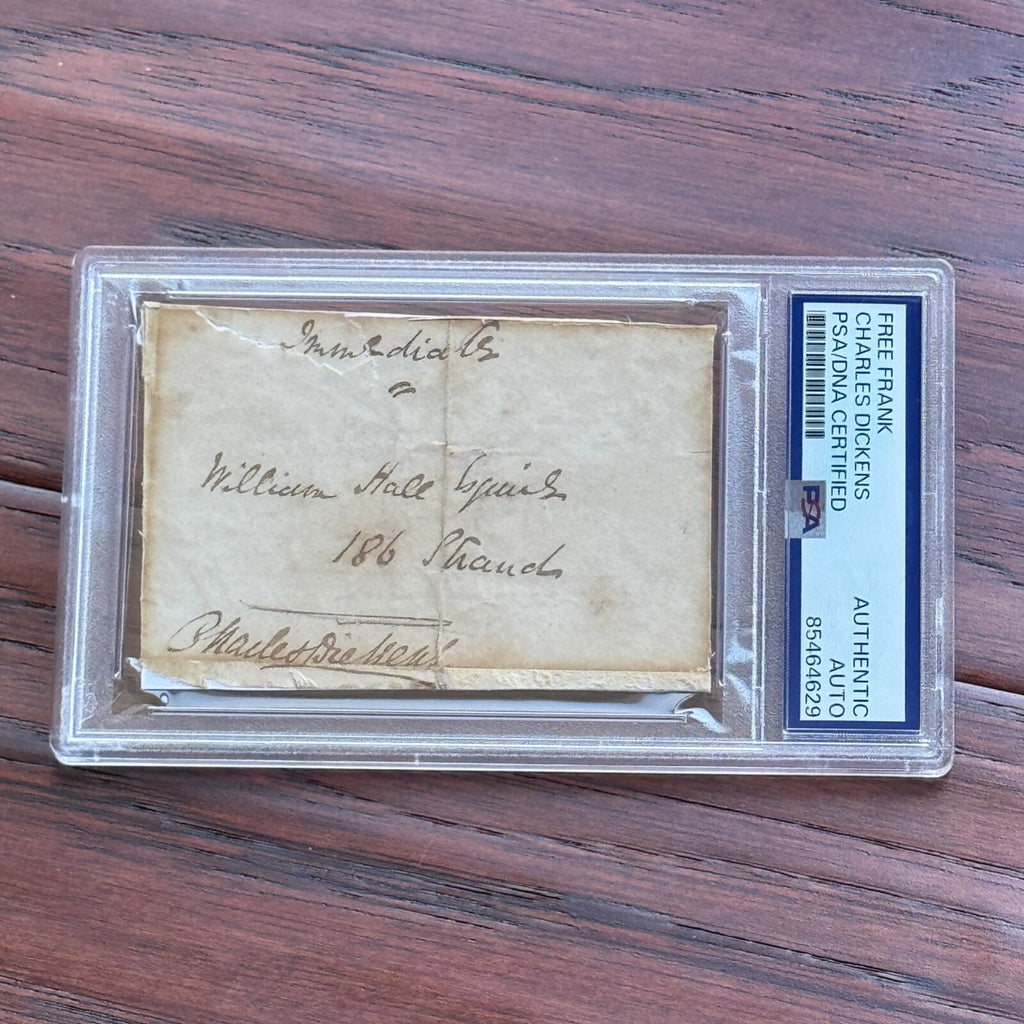 Immediate
William Hall Esquire
186 Strand
Charles Dickens
FREE FRANK
CHARLES DICKENS
PSA/DNA CERTIFIED
PSA
AUTHENTIC
AUTO
85464629